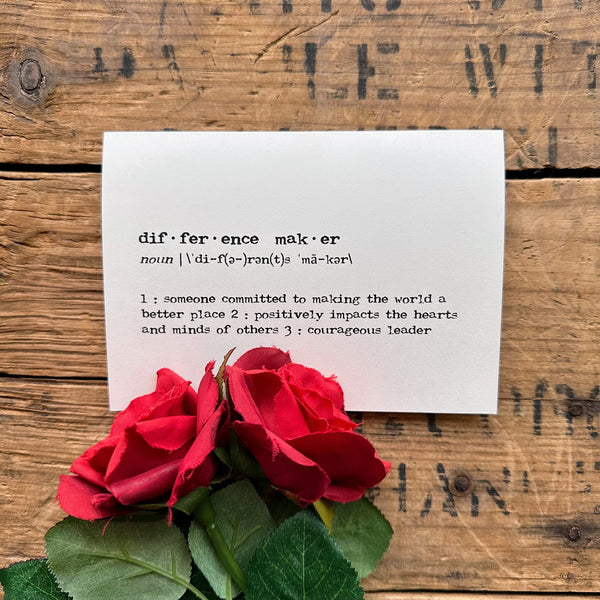 dif·fer·ence mak·er
noun | \ˈdi-f(ə-)rən(t)s ˈmā-kər\
1 : someone committed to making the world a
better place 2 : positively impacts the hearts
and minds of others 3 : courageous leader